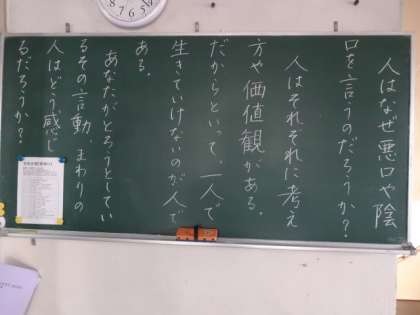 人はなぜ悪口や陰
口を言うのだろうか？
人はそれぞれに考え
方や価値観がある。
だからといって、一人で
生きていけないのが人で
ある。
あなたがとろうとしてい
るその言動、まわりの
人はどう感じ
るだろうか？